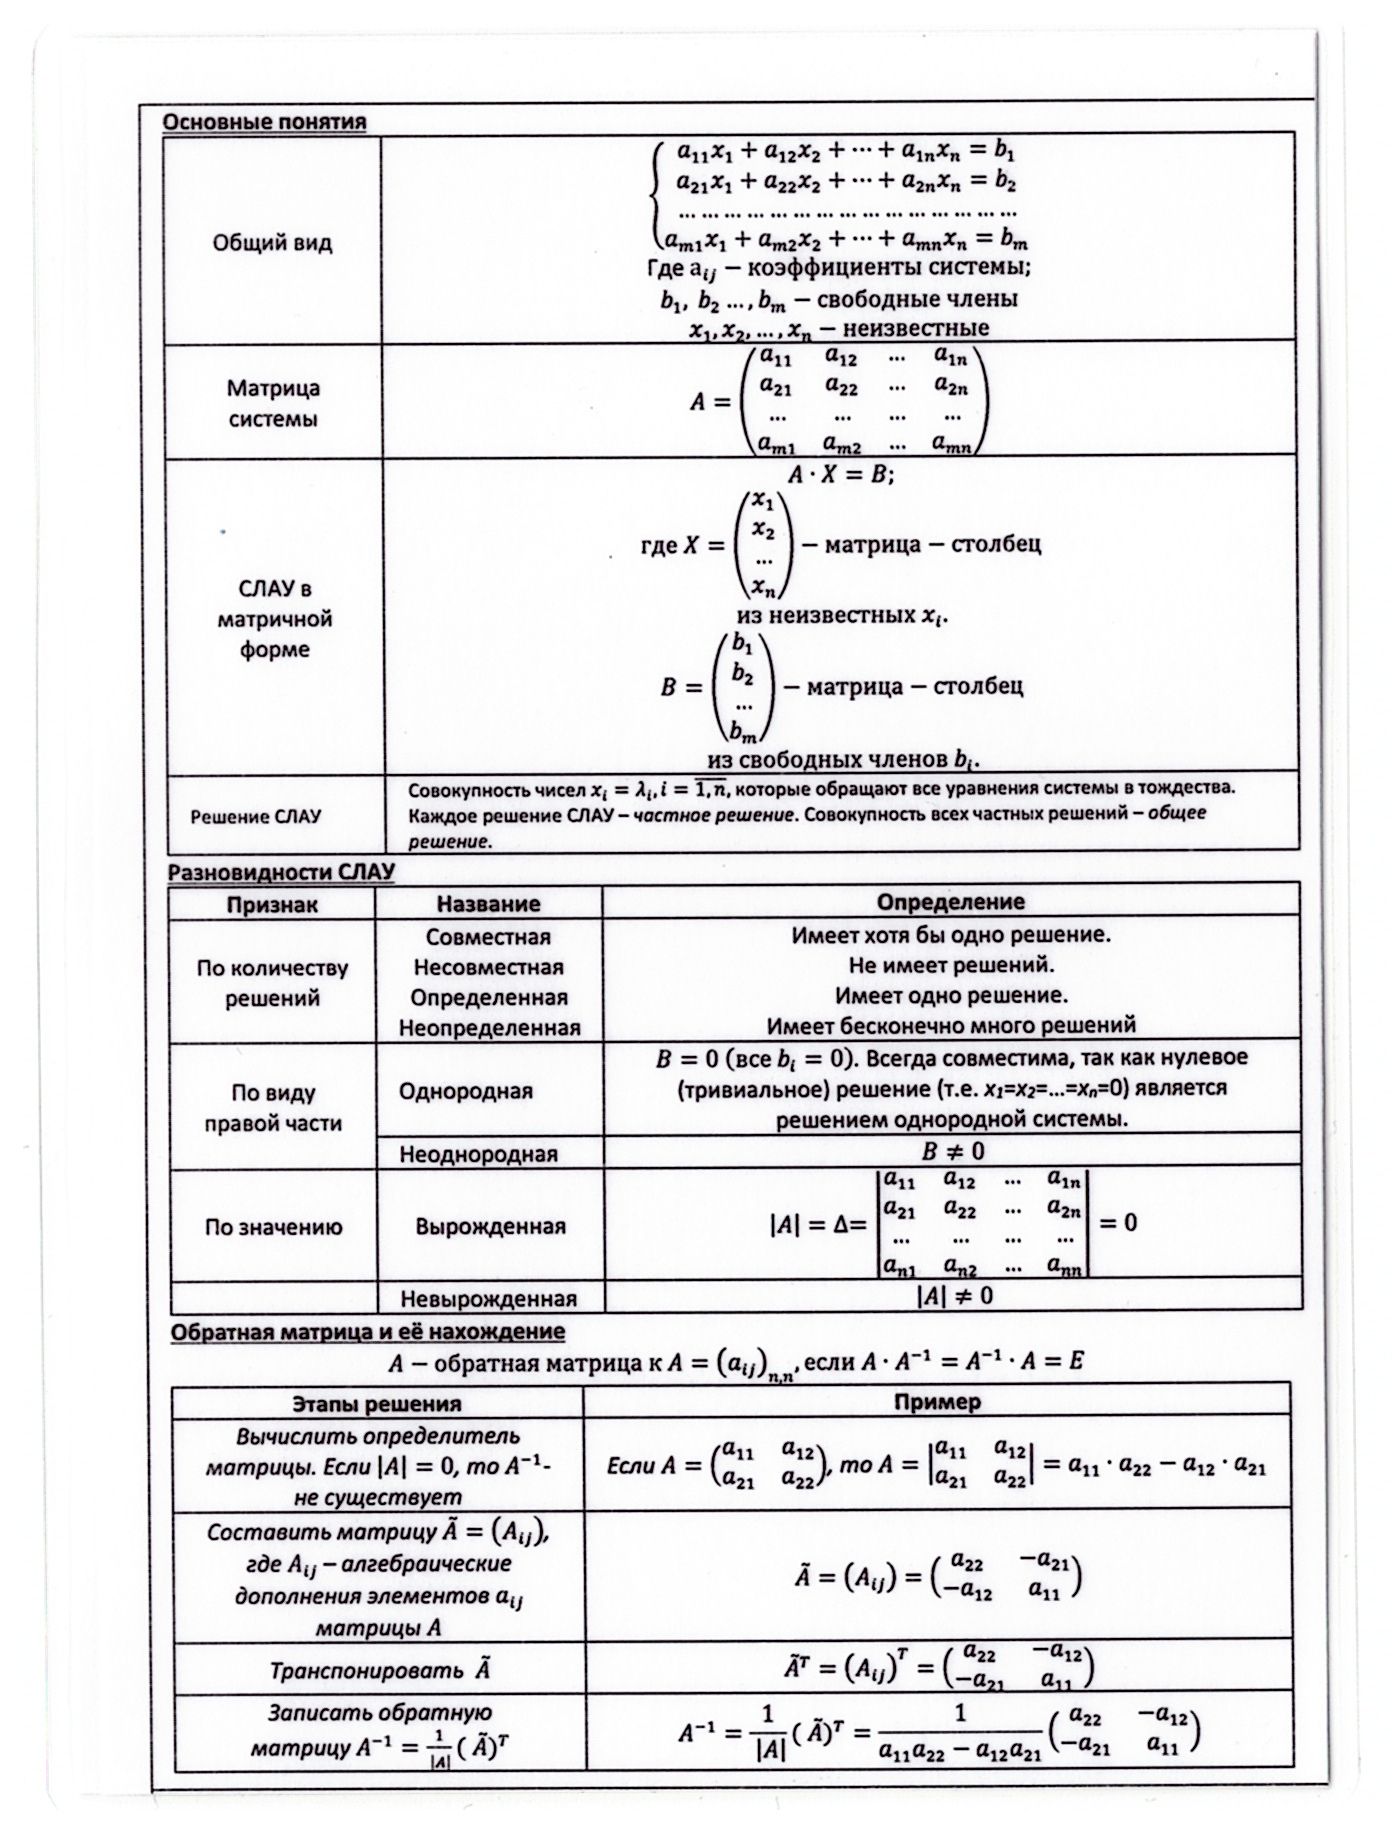 Основные понятия
a₁₁x₁ + a₁₂x₂ + ⋯ + a₁ₙxₙ = b₁
a₂₁x₁ + a₂₂x₂ + ⋯ + a₂ₙxₙ = b₂
… … … … … … … … … … … … … … …
aₘ₁x₁ + aₘ₂x₂ + ⋯ + aₘₙxₙ = bₘ
Общий вид
Где aᵢⱼ − коэффициенты системы;
b₁, b₂ …, bₘ − свободные члены
x₁, x₂, …, xₙ − неизвестные
Матрица
системы
A =
a₁₁ a₁₂ … a₁ₙ
a₂₁ a₂₂ … a₂ₙ
… … … …
aₘ₁ aₘ₂ … aₘₙ
СЛАУ в
матричной
форме
A · X = B;
где X = (x₁ x₂ … xₙ) − матрица − столбец
из неизвестных xᵢ.
B = (b₁ b₂ … bₘ) − матрица − столбец
из свободных членов bᵢ.
Решение СЛАУ
Совокупность чисел xᵢ = λᵢ, i = 1, n, которые обращают все уравнения системы в тождества.
Каждое решение СЛАУ – частное решение. Совокупность всех частных решений – общее
решение.
Разновидности СЛАУ
Признак Название Определение
По количеству
решений
Совместная Имеет хотя бы одно решение.
Несовместная Не имеет решений.
Определенная Имеет одно решение.
Неопределенная Имеет бесконечно много решений
По виду
правой части
Однородная
B = 0 (все bᵢ = 0). Всегда совместима, так как нулевое
(тривиальное) решение (т.е. x₁=x₂=...=xₙ=0) является
решением однородной системы.
Неоднородная B ≠ 0
По значению Вырожденная
|A| = Δ=
a₁₁ a₁₂ … a₁ₙ
a₂₁ a₂₂ … a₂ₙ
… … … …
aₙ₁ aₙ₂ … aₙₙ
= 0
Невырожденная |A| ≠ 0
Обратная матрица и её нахождение
A − обратная матрица к A = (aᵢⱼ)ₙ,ₙ, если A · A⁻¹ = A⁻¹ · A = E
Этапы решения Пример
Вычислить определитель
матрицы. Если |A| = 0, то A⁻¹-
не существует
Если A = (a₁₁ a₁₂ a₂₁ a₂₂), то A = |a₁₁ a₁₂ a₂₁ a₂₂| = a₁₁ · a₂₂ − a₁₂ · a₂₁
Составить матрицу Ã = (Aᵢⱼ),
где Aᵢⱼ – алгебраические
дополнения элементов aᵢⱼ
матрицы A
Ã = (Aᵢⱼ) = (a₂₂ −a₂₁ −a₁₂ a₁₁)
Транспонировать Ã
Ãᵀ = (Aᵢⱼ)ᵀ = (a₂₂ −a₁₂ −a₂₁ a₁₁)
Записать обратную
матрицу A⁻¹ = 1/|A| (Ã)ᵀ
A⁻¹ = 1/|A| (Ã)ᵀ = 1/(a₁₁a₂₂ − a₁₂a₂₁) (a₂₂ −a₁₂ −a₂₁ a₁₁)